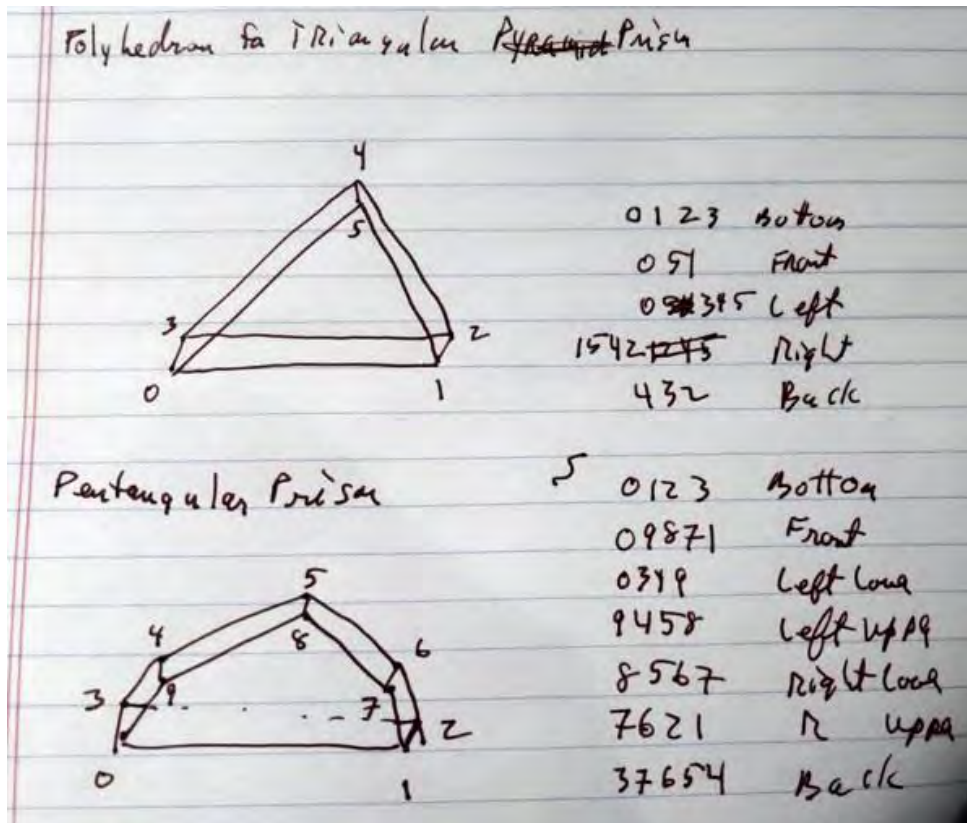 Polyhedron for Triangular Prism
4
5
3
2
0
1
0123 Bottom
051 Front
0345 Left
1542 Right
432 Back
Pentangular Prism
5
0123 Bottom
09871 Front
0349 Left Lowe
9458 Left uppe
8567 Right Lowe
7621 R uppe
37654 Back
5
4
8
6
3
9
7
2
0
1